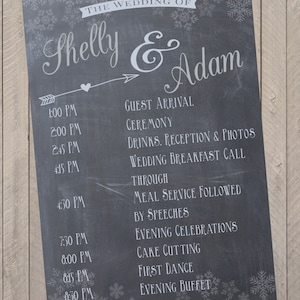 THE WEDDING OF
Shelly
&
Adam
1:00 PM Guest Arrival
2:00 PM Ceremony
2:45 PM Drinks, Reception & Photos
4:15 PM Wedding Breakfast Call
through
4:30 PM Meal Service Followed
by Speeches
7:30 PM Evening Celebrations
8:00 PM Cake Cutting
8:15 PM First Dance
8:30 PM Evening Buffet